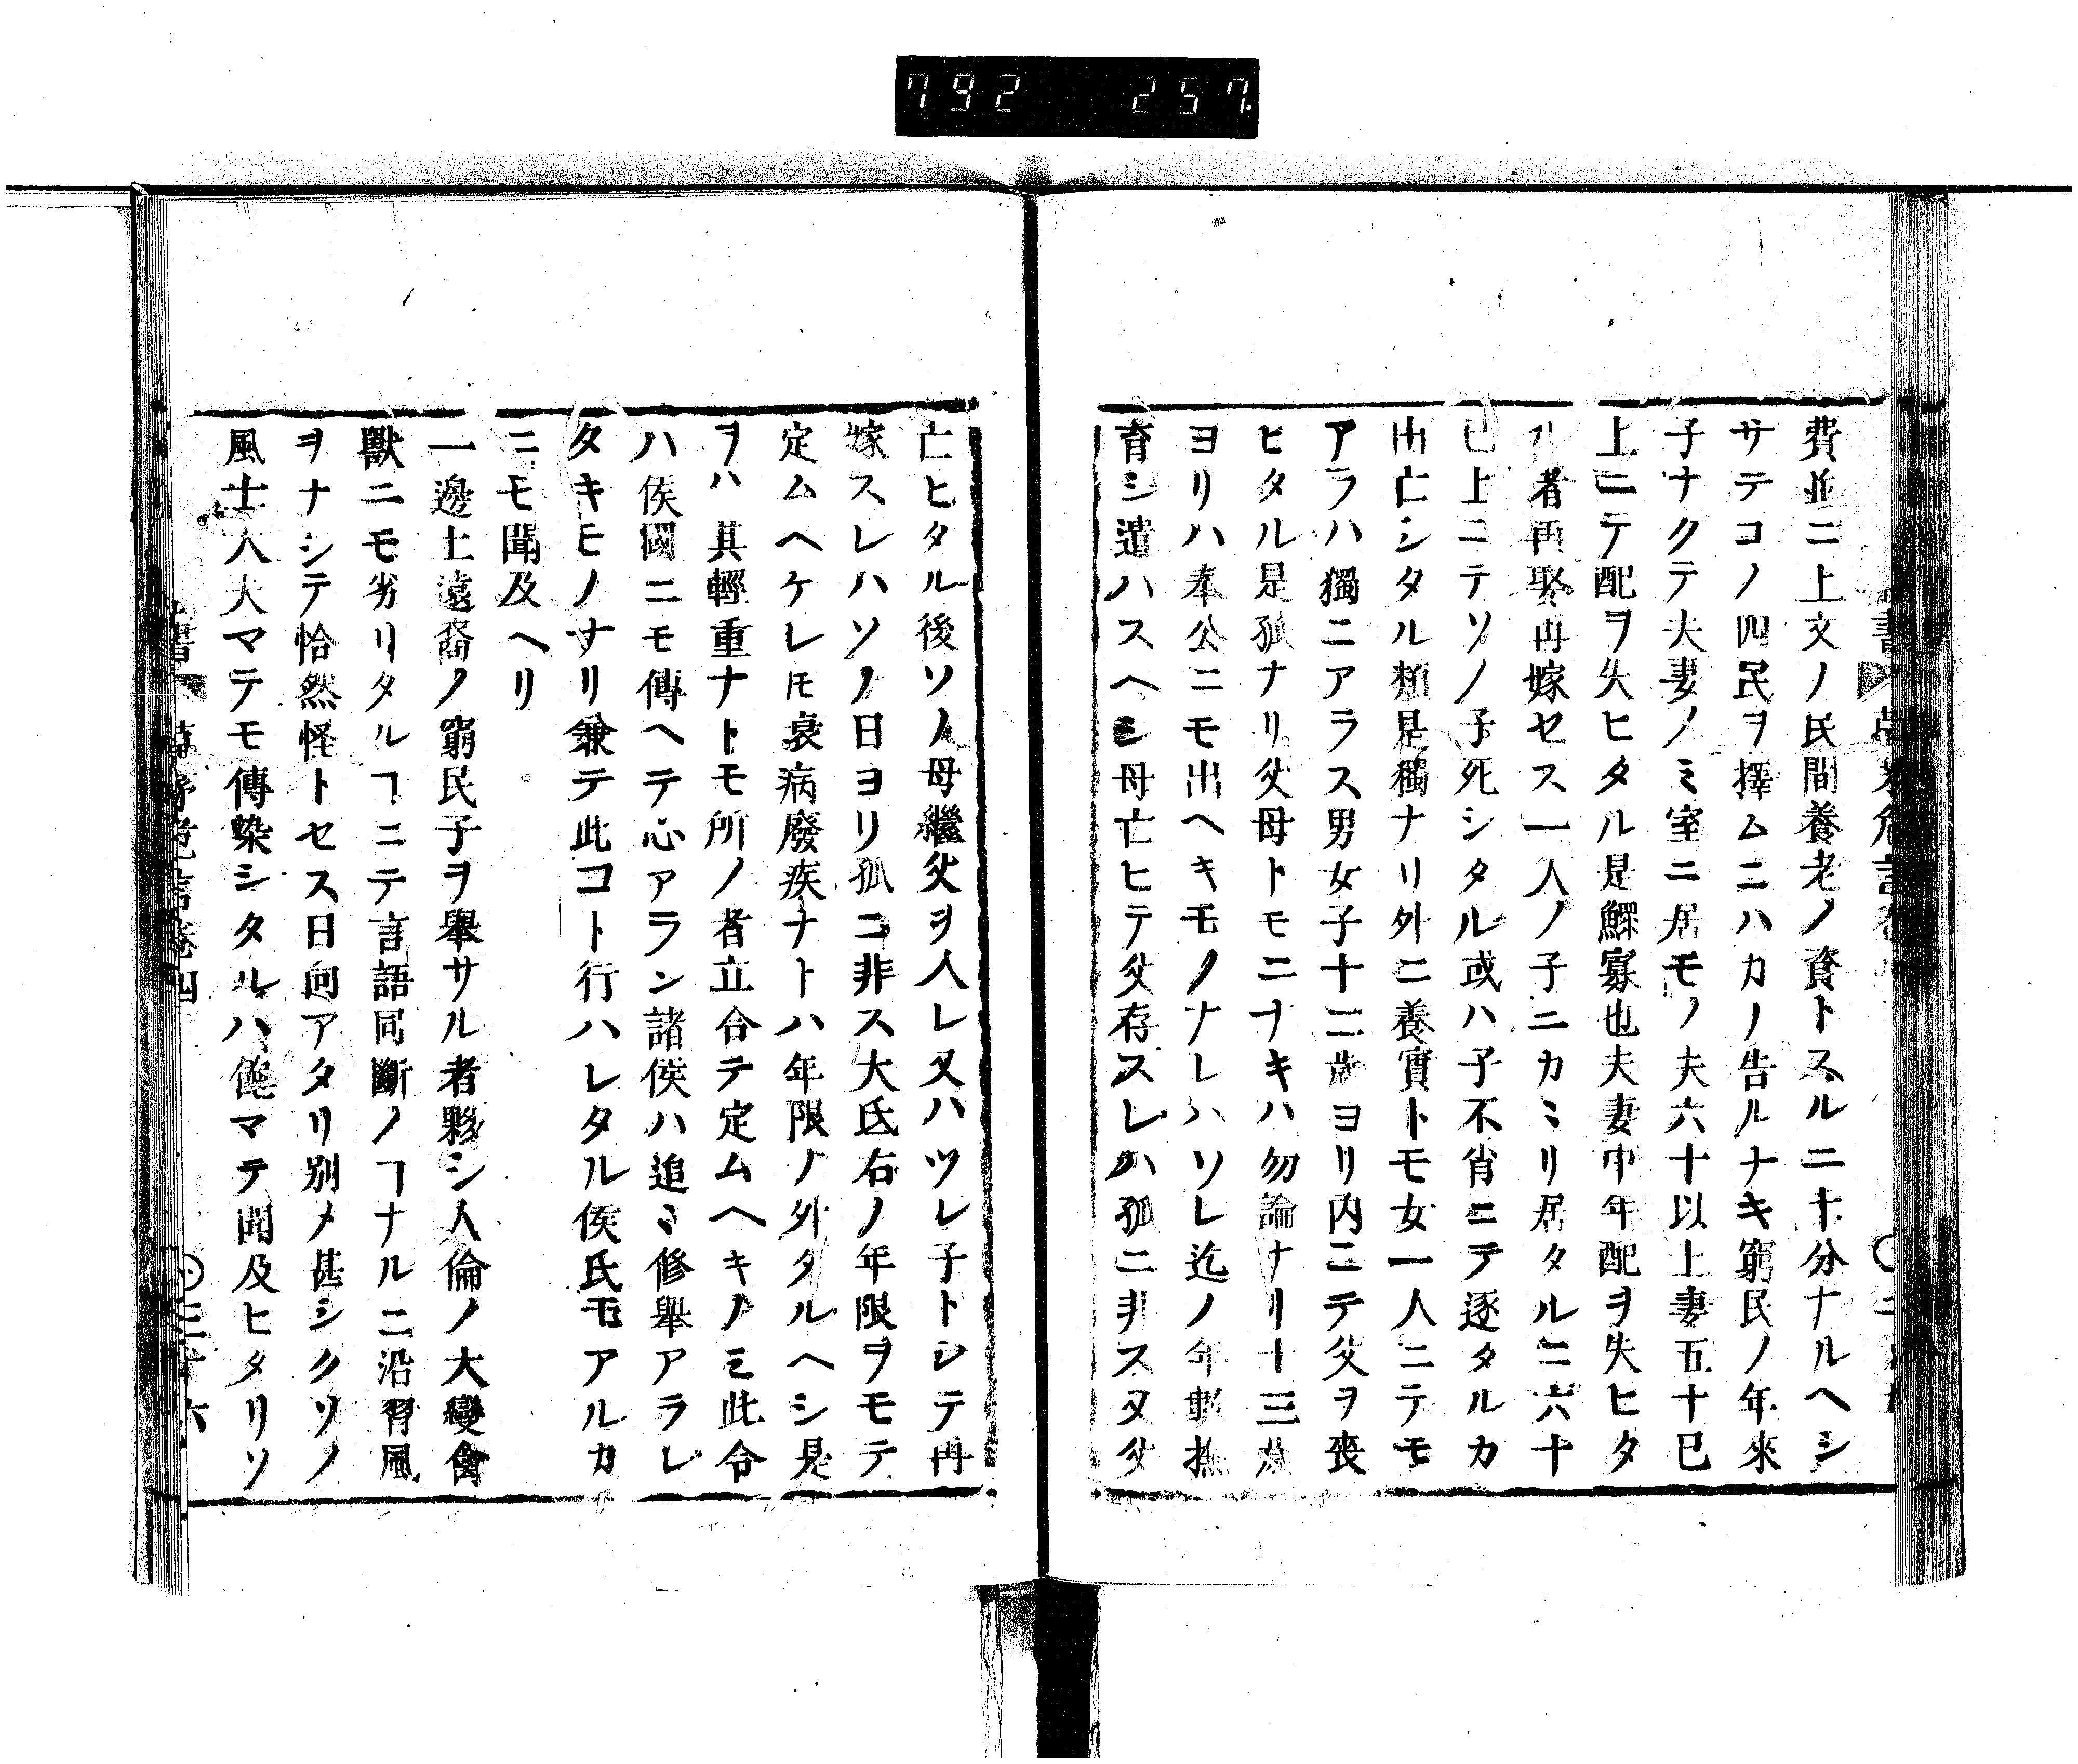 792 257
費並ニ上文ノ民間養老ノ資トスルニ十分ナルヘシ
サテコノ四民ヲ擇ムニハカノ告ルナキ窮民ノ年來
子ナクテ夫妻ノミ室ニ居モノ夫六十以上妻五十已
上ニテ配ヲ失ヒタル是鰥寡也夫妻中年配ヲ失ヒタ
者再娶再嫁セス一人ノ子ニカミリ居タルニ六十
已上ニテソノ子死シタル或ハ子不肖ニテ逐タルカ
出亡シタル類是獨ナリ外ニ養實トモ女一人ニテモ
アラハ獨ニアラス男女子十二歳ヨリ内ニテ父ヲ喪
ヒタル是孤ナリ父母トモニナキハ勿論ナリ十三歳
ヨリハ奉公ニモ出ヘキモノナレハソレ迄ノ年數撫
育シ遣ハスヘシ母亡ヒテ父存スレハ孤ニ非ス又父
亡ヒタル後ソノ母繼父ヲ入レ又ハツレ子トシテ再
嫁スレハソノ日ヨリ孤ニ非ス大氐右ノ年限ヲモテ
定ムヘケレ𪜈衰病廢疾ナトハ年限ノ外タルヘシ是
ヲハ其輕重ナトモ所ノ者立合テ定ムヘキノミ此令
ハ侯國ニモ傳ヘテ心アラン諸侯ハ追ミ修舉アラレ
タキヒノナリ兼テ此コト行ハレタル侯氏モアルカ
ニモ聞及ヘリ
一邊土遠裔ノ窮民子ヲ舉サル者夥シ人倫ノ大變禽
獸ニモ劣リタルヿニテ言語同斷ノヿナルニ沿習風
ヲナシテ恰然怪トセス日向アタリ別メ甚シクソノ
風士人大マテモ傳染シタルハ俺マテ聞及ヒタリソ
草茅危言卷四 三十六